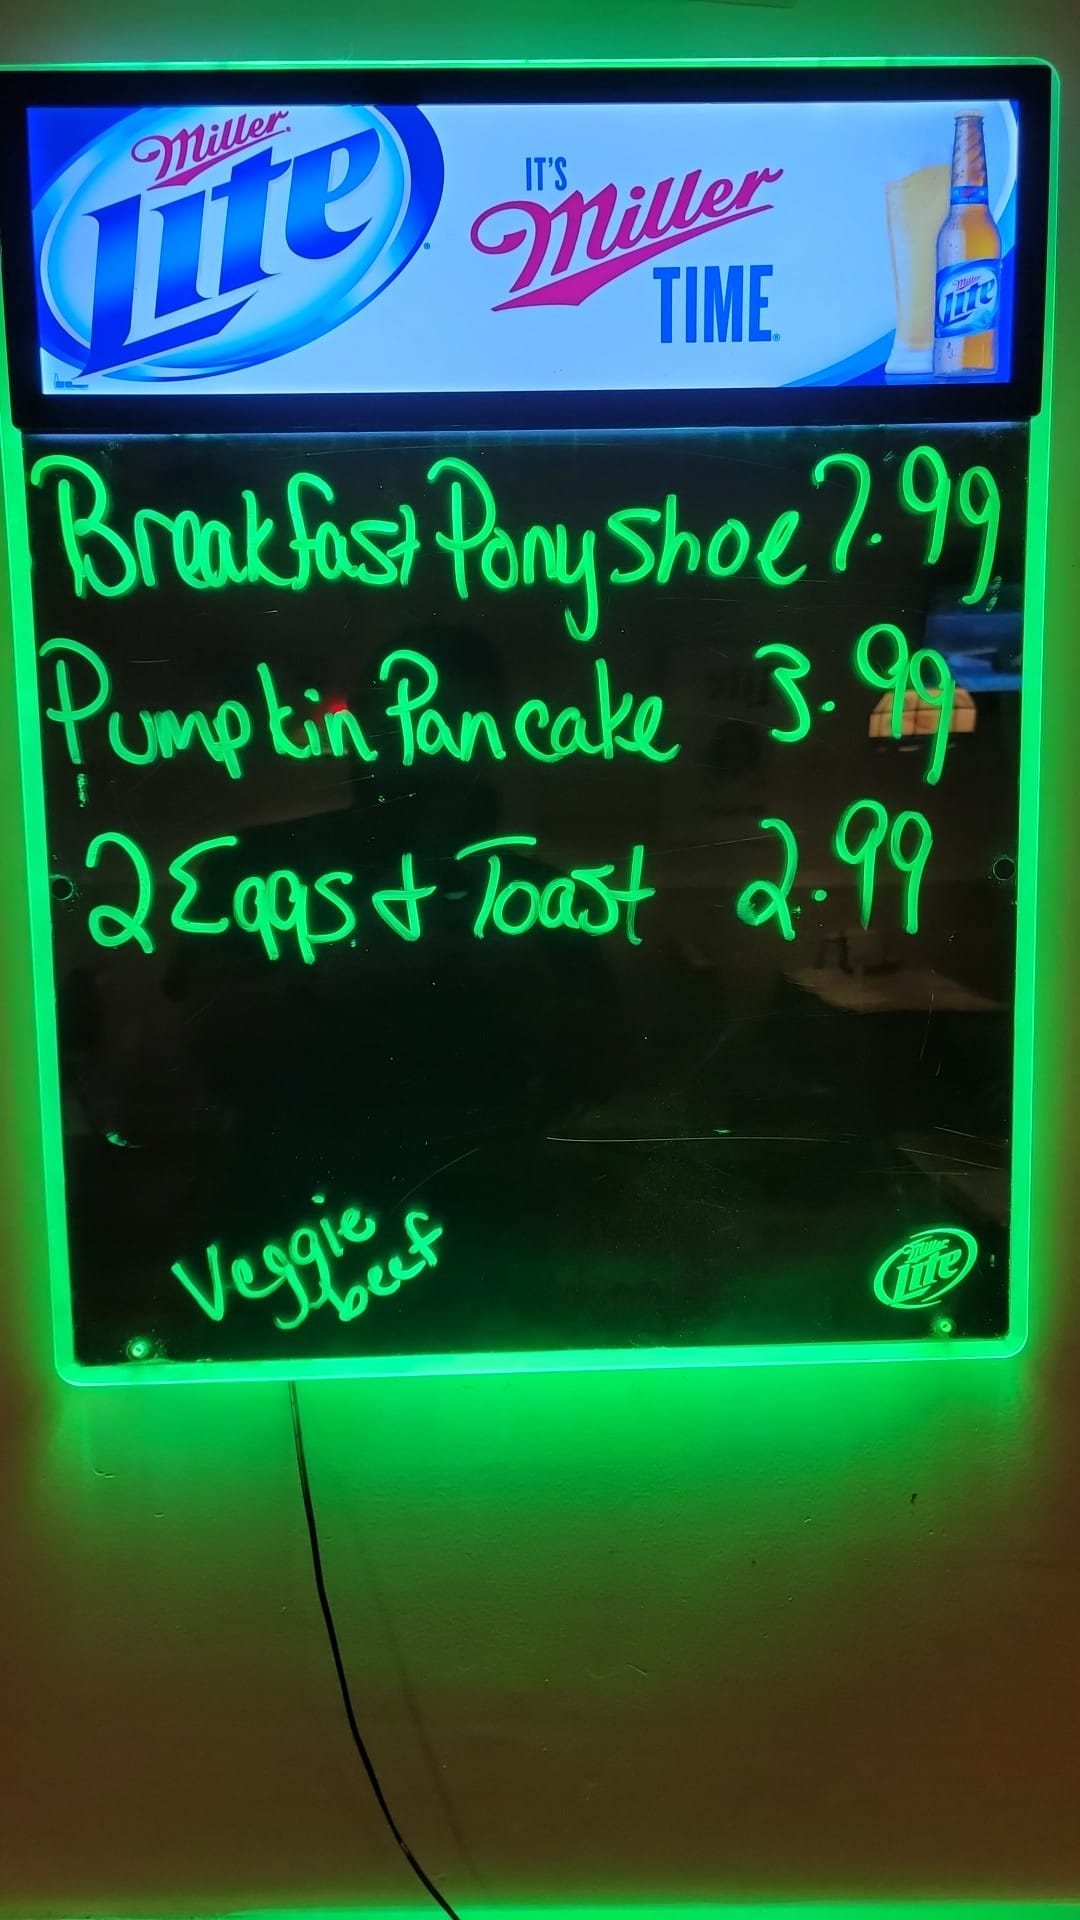 Miller
Lite
IT'S
Miller
TIME
Miller
Lite
Breakfast Pony shoe 7.99
Pumpkin Pancake 3.99
2 Eggs + Toast 2.99
Veggie
beef
Miller
Lite